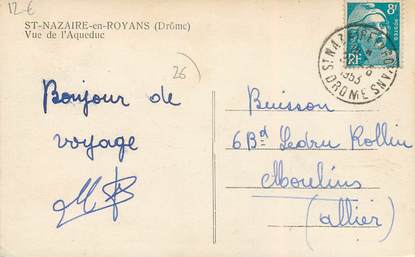 12 €
ST-NAZAIRE-en-ROYANS (Drôme)
Vue de l'Aqueduc
26
8F
POSTES
RF
ST NAZAIRE EN ROYANS
1953
DROME
Bonjour de
voyage
Buisson
6 Bd Ledru Rollin
Moulins
(Allier)